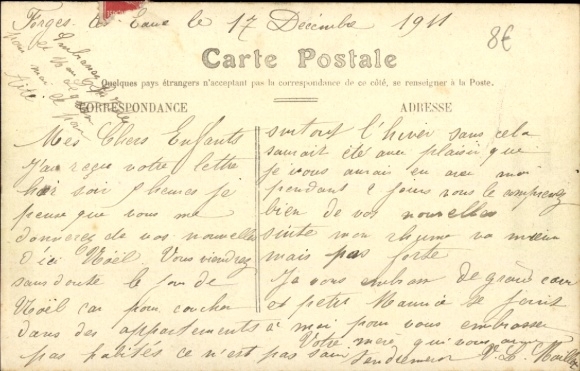 Forges les Eaux le 17 Décembre 1911
8€
Carte Postale
Quelques pays étrangers n'acceptent pas la correspondance de ce côté, se renseigner à la Poste.
CORRESPONDANCE
ADRESSE
Mes Chers Enfants
J'ai reçu votre lettre
hier soir 5 heures je
pense que vous me
donnerez de vos nouvelles
d'ici Noël. Vous viendrez
sans doute le jour de
Noël car pour coucher
dans des appartements
pas habités ce n'est pas sain
surtout l'hiver sans cela
saurait été avec plaisir que
je vous aurais eu avec moi
pendant 2 jours vous le comprenez
bien de vos nouvelles
suite mon rhume va mieux
mais pas forte
Je vous embrasse de grand cœur
et petit Maurice se joint
à moi pour vous embrasser
Votre mère qui vous aime
tendrement V. L.
Embrassez
pour moi